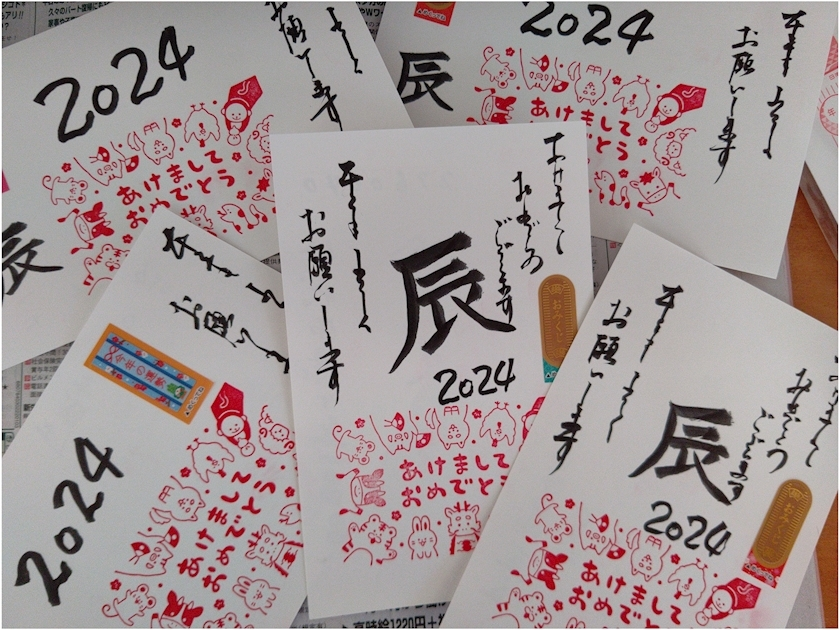 2024
お願いします
あけまして
おめでとう
辰
2024
辰
本年も よろしく
お願いします
あけまして
おめでとう
あけまして
おめでとう
ございます
本年も よろしく
お願いします
辰
おみくじ
2024
あけまして
おめでとう
本年も よろしく
お願いします
今年の運勢
2024
あけまして
おめでとう
あけまして
おめでとう
ございます
本年も よろしく
お願いします
辰
おみくじ
2024
あけまして
おめでとう
高時給1220円+